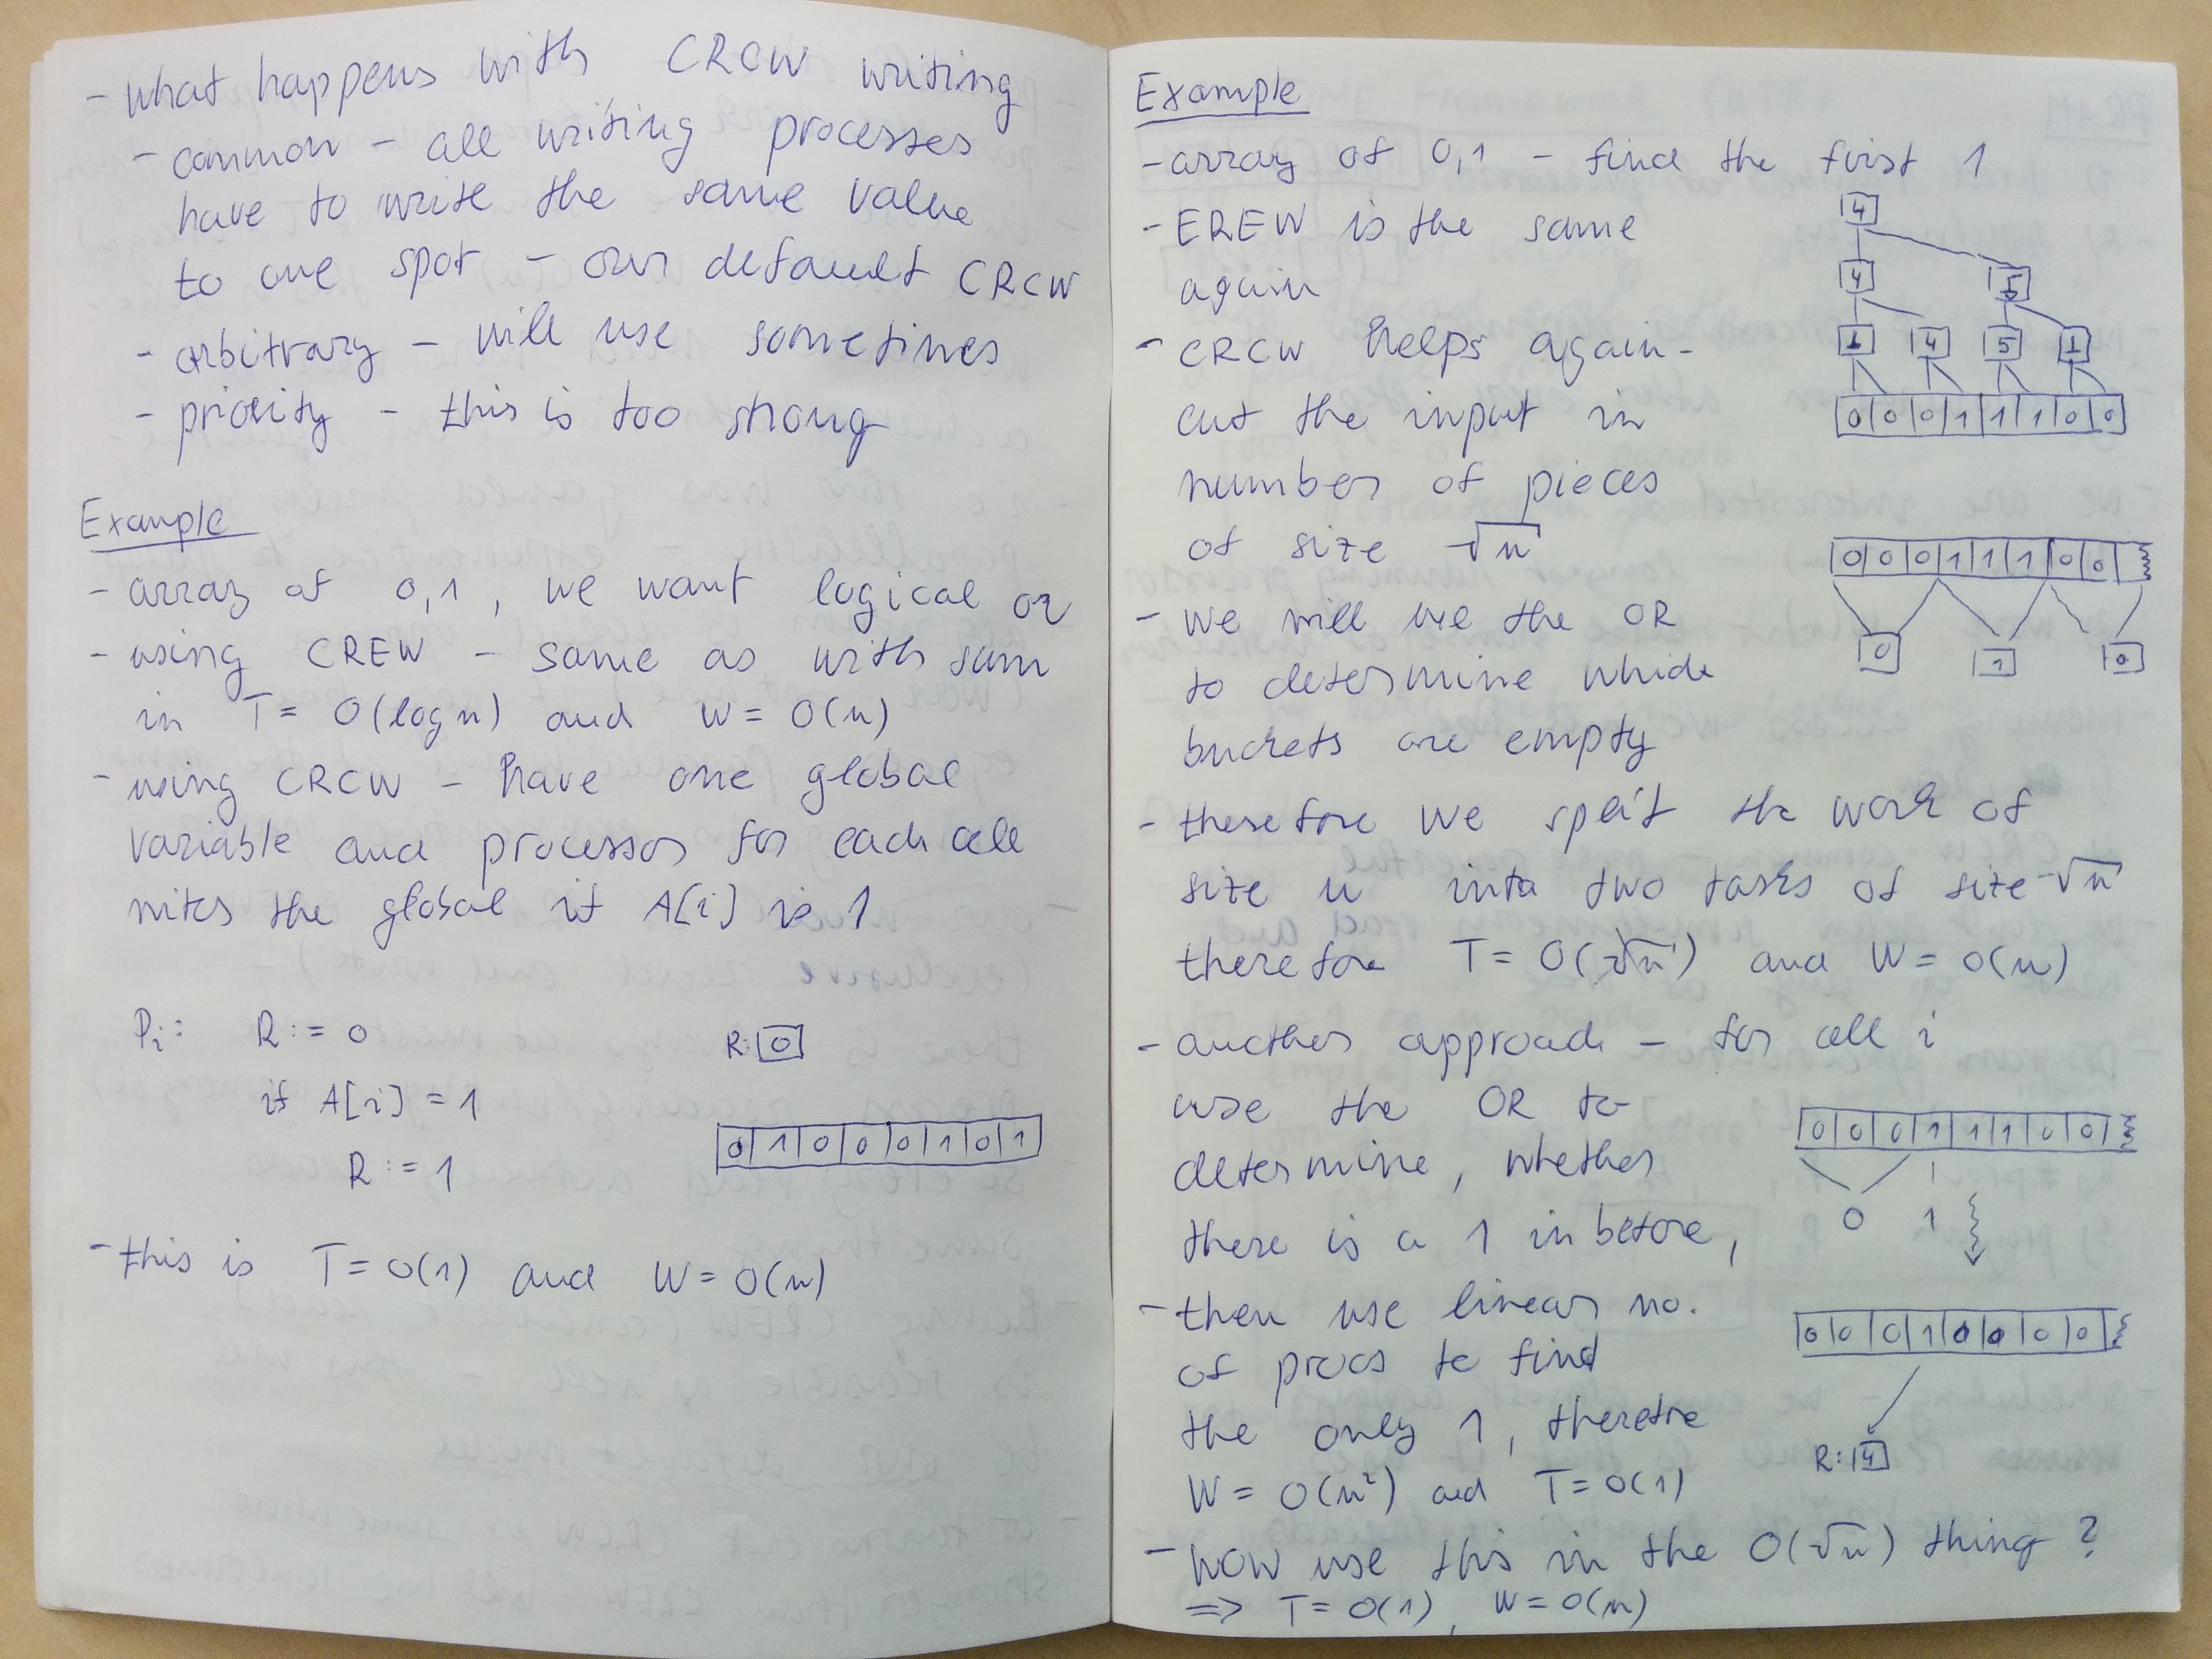 - what happens with CRCW writing
- common - all writing processes
have to write the same value
to one spot - our default CRCW
- arbitrary - will use sometimes
- priority - this is too strong
Example
- array of 0,1, we want logical or
- using CREW - same as with sum
in T = O(log n) and W = O(n)
- using CRCW - have one global
variable and processor for each cell
writes the global if A[i] is 1
Pi: R := 0
R: 0
if A[i] = 1
0 1 0 0 0 1 0 1
R := 1
- this is T = O(1) and W = O(n)
Example
- array of 0,1 - find the first 1
4
- EREW is the same
4 5
again
- CRCW helps again -
1 4 5 1
cut the input in
0 0 0 1 1 1 0 0
number of pieces
of size √n
0 0 0 1 1 1 0 0
- we will use the OR
0 1 0
to determine which
buckets are empty
- therefore we split the work of
size n into two tasks of size √n
therefore T = O(√n) and W = O(n)
- another approach - for all i
use the OR to
0 0 0 1 1 1 0 0
determine, whether
0 1
there is a 1 in before,
- then use linear no.
0 0 0 1 0 0 0 0
of procs to find
the only 1, therefore
R: 4
W = O(n²) and T = O(1)
- now use this in the O(√n) thing?
⇒ T = O(1), W = O(n)